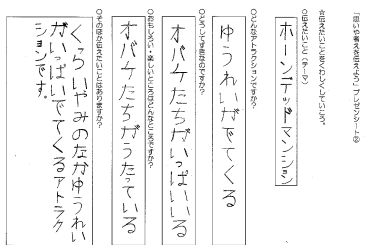 「思いや考えを伝えよう」プレゼンシート②
☆伝えたいことをくわしくしていこう。
○伝えたいこと（テーマ）
ホーンテッドマンション
○どんなアトラクションですか？
ゆうれいがでてくる
○どうしてすきなのですか？
オバケたちがいっぱいいる
○おもしろい・楽しいところはどんなところですか？
オバケたちがうたっている
○そのほか伝えたいことはありますか？
くらいやみのなかゆうれい
がいっぱいでてくるアトラク
ションです。